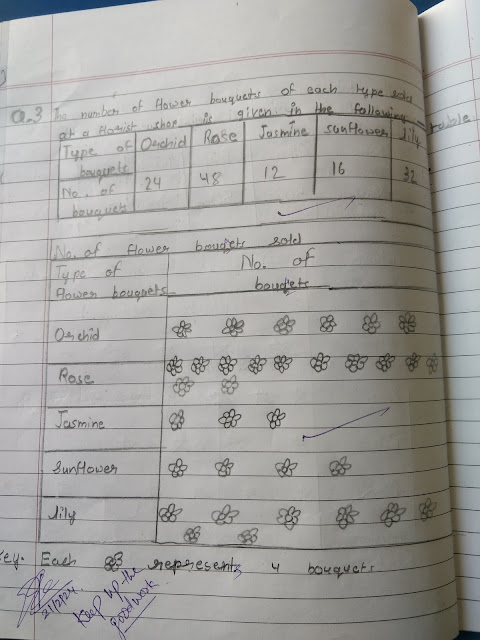 Q.3 The number of flower bouquets of each type sold
at a florist shop is given in the following table
Type of bouquets Orchid Rose Jasmine sunflower lily
No. of bouquets 24 48 12 16 32
No. of flower bouqets sold
Type of flower bouqets No. of bouqets
Orchid
Rose
Jasmine
Sunflower
lily
key. Each represents 4 bouquets
21/2024
Keep up the
good work.